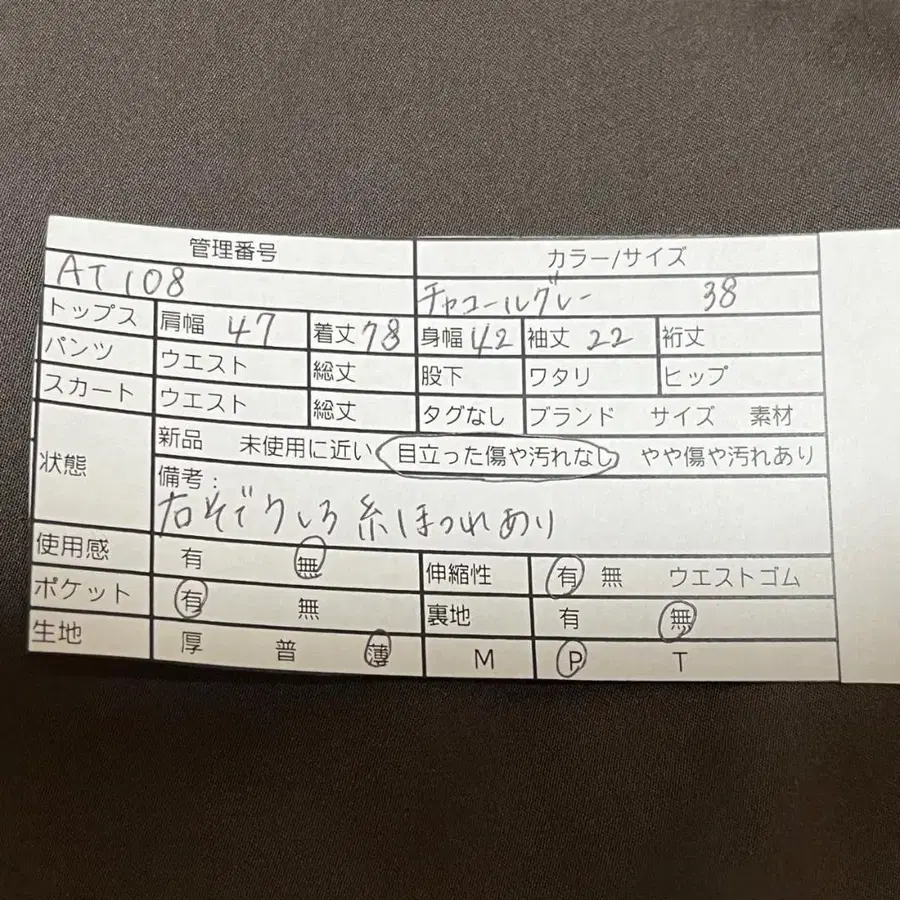 管理番号 カラー/サイズ
AT108 チャコールグレー 38
トップス 肩幅 47 着丈 78 身幅 42 袖丈 22 裄丈
パンツ ウエスト 総丈 股下 ワタリ ヒップ
スカート ウエスト 総丈 タグなし ブランド サイズ 素材
状態 新品 未使用に近い 目立った傷や汚れなし やや傷や汚れあり
備考:
右そでうしろ 糸ほつれあり
使用感 有 無 伸縮性 有 無 ウエストゴム
ポケット 有 無 裏地 有 無
生地 厚 普 薄 M P T